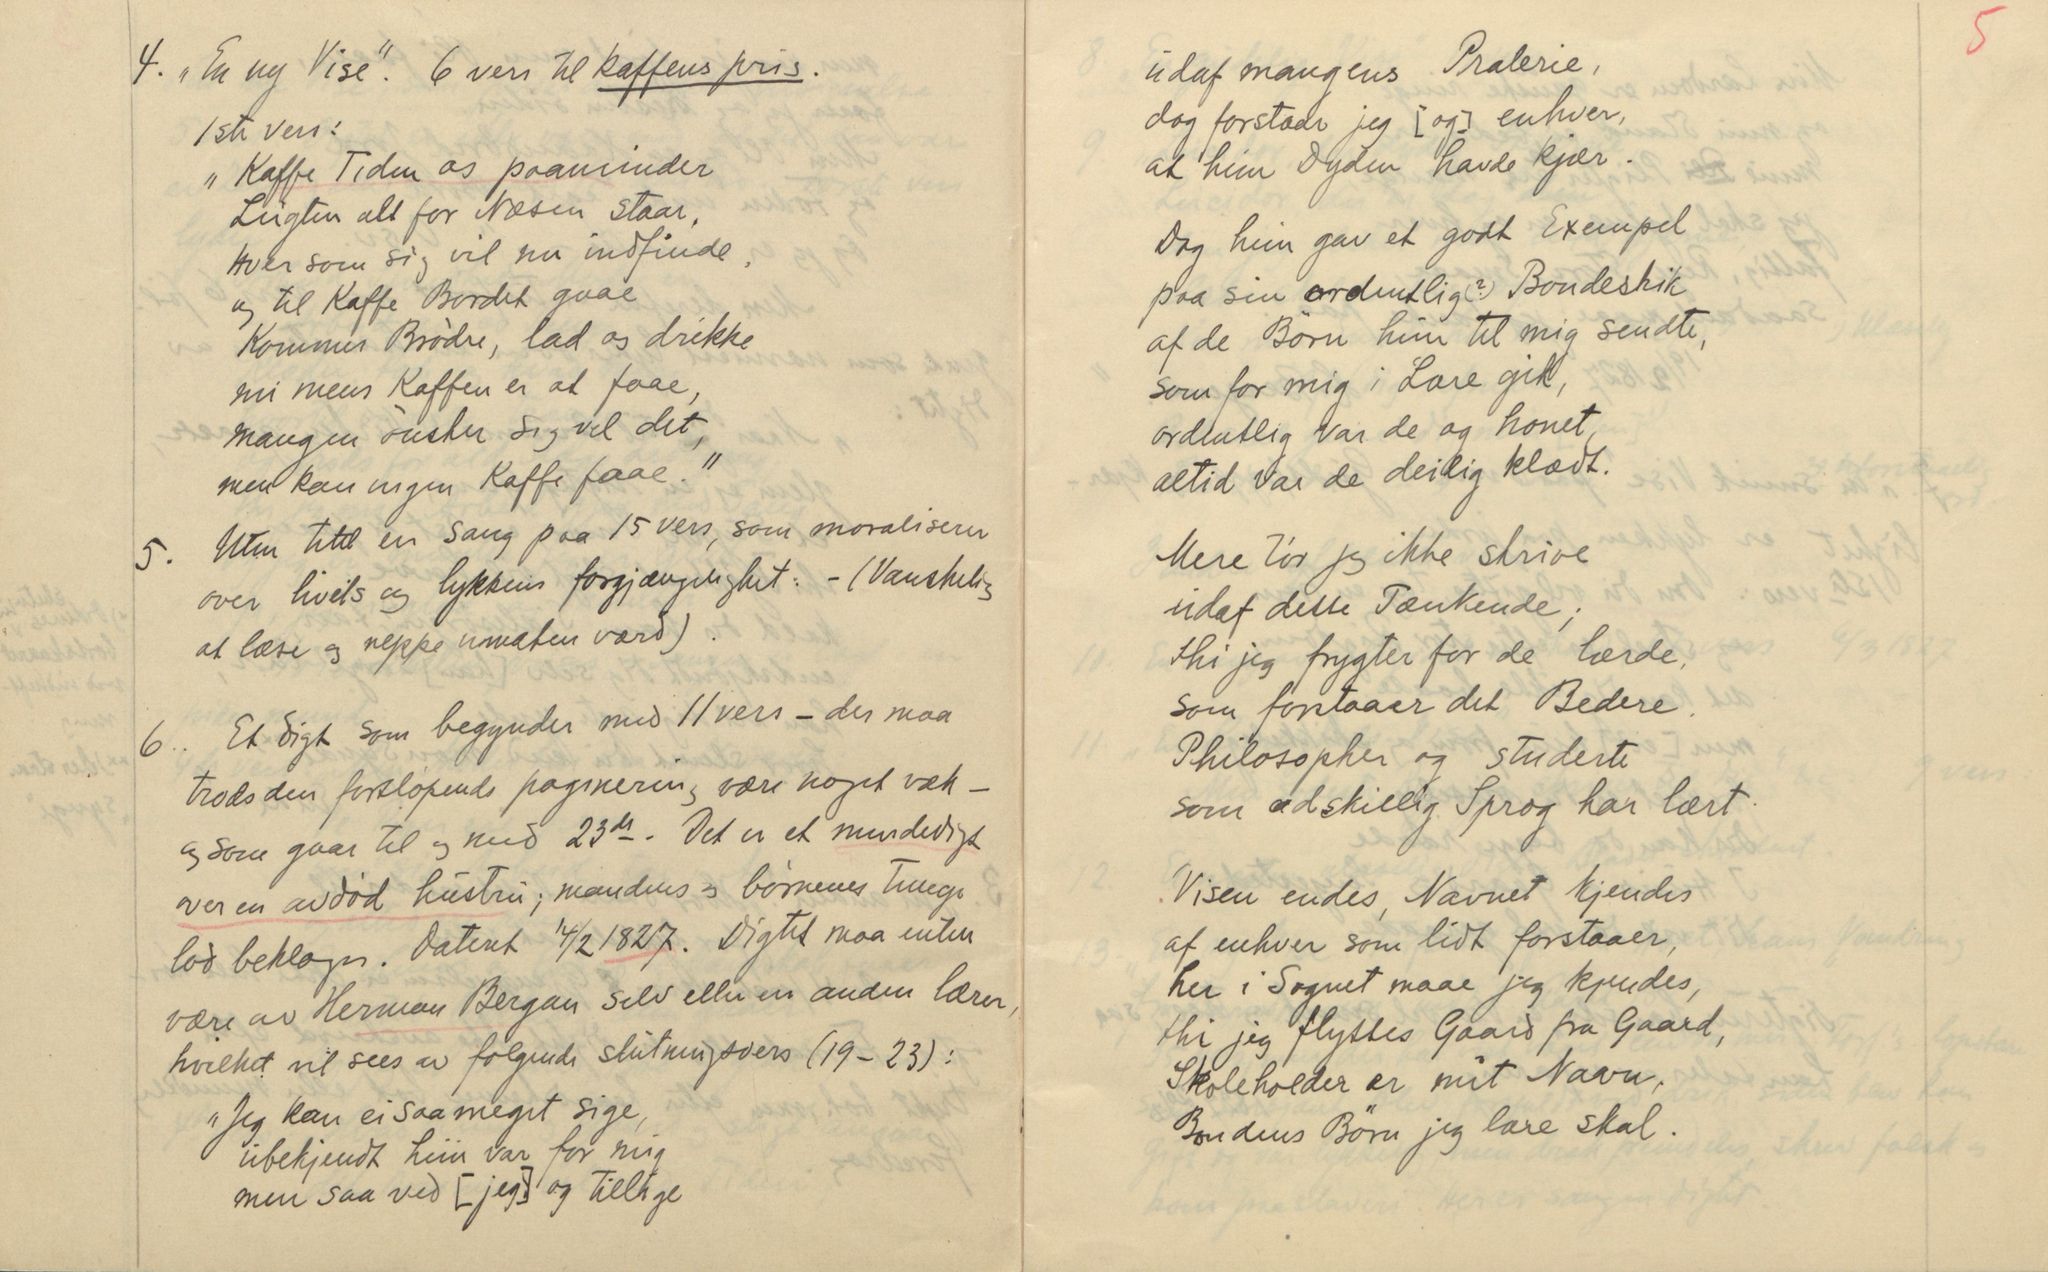 4. „En ny Vise". 6 vers til kaffens pris.
1ste vers:
„Kaffe Tiden os paaminder
Lugten alt for Næsen staar,
Hver som sig vil nu indfinde,
og til Kaffe Bordet gaae
Kommer Brödre, lad os drikke
nu mens Kaffen er at faae,
mangen önsker sig vel det,
men kan ingen Kaffe faae."
5. Uten titel en sang paa 15 vers, som moraliserer
over livets og lykkens forgjængelighet. - (Vanskelig
at læse og neppe umaken værd).
6. Et digt som begynder med 11 vers - der maa
trods den fortlöpende paginering være noget væk -
og som gaar til og med 23de. Det er et mindedigt
over en avdöd hustru; mandens og börnenes tunge
lod beklages. Datert 14/2 1827. Digtet maa enten
være av Herman Bergan selv eller en anden lærer,
hvilket vil sees av fölgende slutningsvers (19-23):
„Jeg kan ei saameget sige,
ubekjendt hun var for mig
men saa ved [jeg] og tillige
5
udaf mangens Pralerie,
dog forstaar jeg [og] enhver,
at hun Dyden havde kjær.
Dog hun gav et godt Exempel
paa sin ordentlig(?) Bondeskik
af de Börn hun til mig sendte,
som for mig i Lære gik,
ordentlig var de og honet,
altid var de deilig klædt.
Mere tör jeg ikke skrive
udaf desse Tænkende;
thi jeg frygter for de lærde,
som forstaaer det Bedere.
Philosopher og studerte
som adskillig Sprog har lært.
Visen endes, Navnet kjendes
af enhver som lidt forstaaer,
her i Sognet maae jeg kjendes,
thi jeg flyttes Gaard fra Gaard,
Skoleholder er mit Navn,
Bondens Börn jeg lære skal.